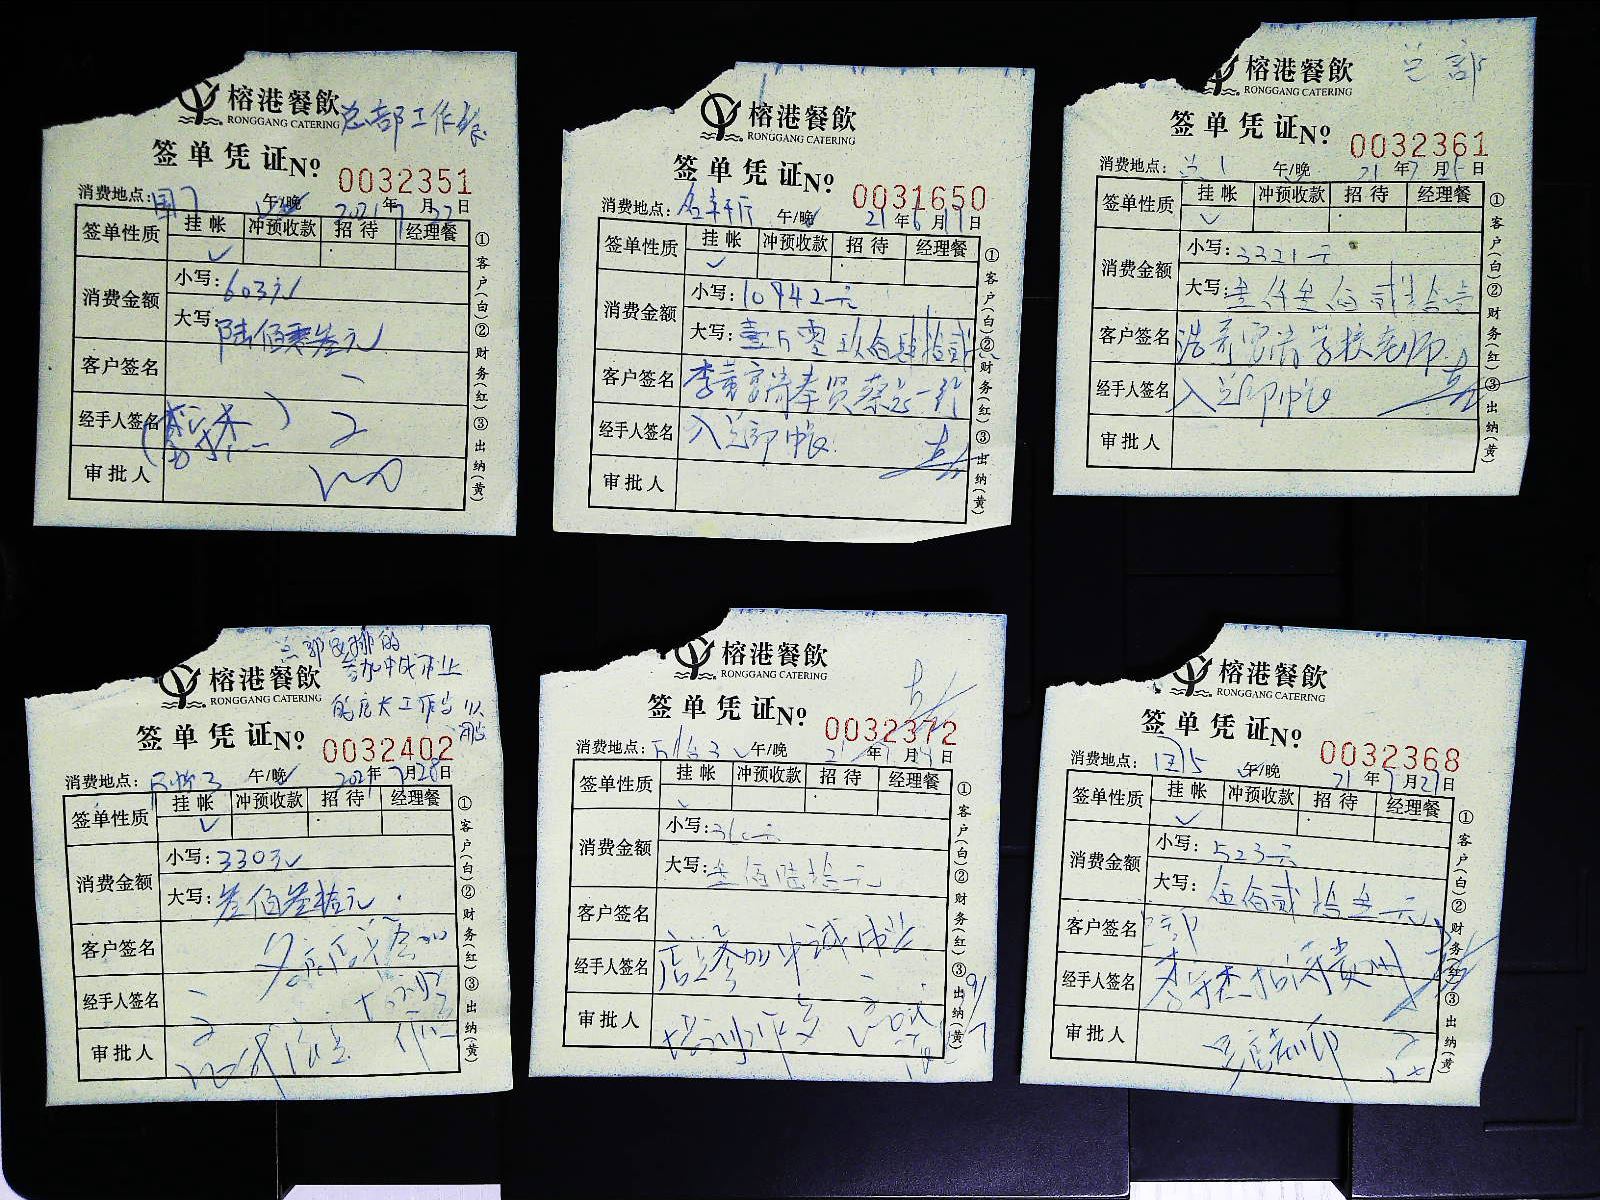 榕港餐飲
RONGGANG CATERING
总部工作餐
签单凭证No 0032351
消费地点: 国7 午/晚 2021年7月22日
签单性质 挂帐 冲预收款 招待 经理餐
消费金额 小写: 603元
大写: 陆佰零叁元
客户签名
经手人签名
审批人
①客户(白)②财务(红)③出纳(黄)
榕港餐飲
RONGGANG CATERING
签单凭证No 0031650
消费地点: 午/晚 21年6月19日
签单性质 挂帐 冲预收款 招待 经理餐
消费金额 小写: 10942元
大写: 壹万零玖佰肆拾贰
客户签名
经手人签名 入总部帐
审批人
①客户(白)②财务(红)③出纳(黄)
总部
榕港餐飲
RONGGANG CATERING
签单凭证No 0032361
消费地点: 兰1 午/晚 21年7月25日
签单性质 挂帐 冲预收款 招待 经理餐
消费金额 小写: 3321元
大写: 叁仟叁佰贰拾壹
客户签名 学校老师
经手人签名 入总部帐
审批人
①客户(白)②财务(红)③出纳(黄)
总部安排的
参加中式
榕港餐飲
RONGGANG CATERING
签单凭证No 0032402
消费地点: 午/晚 2021年7月28日
签单性质 挂帐 冲预收款 招待 经理餐
消费金额 小写: 330元
大写: 叁佰叁拾元
客户签名
经手人签名
审批人
①客户(白)②财务(红)③出纳(黄)
榕港餐飲
RONGGANG CATERING
签单凭证No 0032372
消费地点: 午/晚 21年7月 日
签单性质 挂帐 冲预收款 招待 经理餐
消费金额 小写: 360元
大写: 叁佰陆拾元
客户签名
经手人签名
审批人
①客户(白)②财务(红)③出纳(黄)
榕港餐飲
RONGGANG CATERING
签单凭证No 0032368
消费地点: 国5 午/晚 21年7月27日
签单性质 挂帐 冲预收款 招待 经理餐
消费金额 小写: 523元
大写: 伍佰贰拾叁元
客户签名 总部
经手人签名 招待贵州
审批人
①客户(白)②财务(红)③出纳(黄)